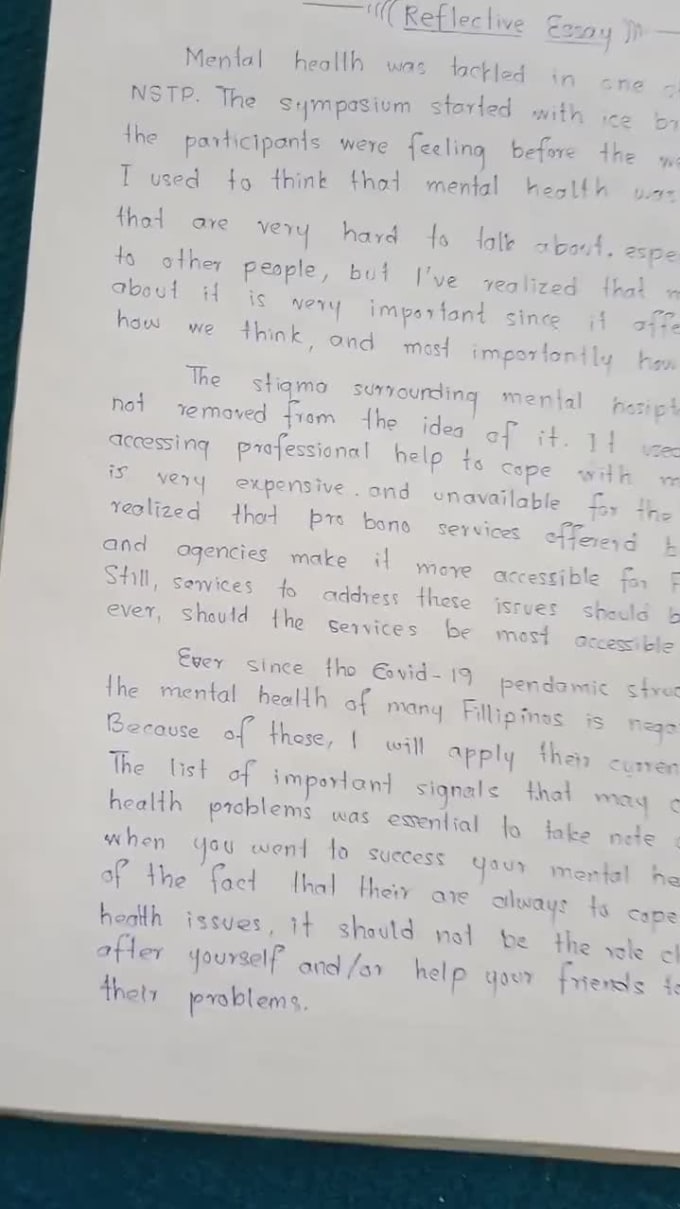 Reflective Essay
Mental health was tackled in one
NSTP. The symposium started with ice
the participants were feeling before the
I used to think that mental health was
that are very hard to talk about. espe
to other people, but I've realized that
about it is very important since it affe
how we think, and most importantly how
The stigma surrounding mental hosipt
not removed from the idea of it. It used
accessing professional help to cope with m
is very expensive. and unavailable for the
realized that pro bono services offererd b
and agencies make it more accessible for F
Still, services to address these issues should b
ever, should the services be most accessible
Ever since the Covid-19 pendamic struc
the mental health of many Fillipinos is nega
Because of those, I will apply their curren
The list of important signals that may
health problems was essential to take note
when you want to success your mental he
of the fact that their are always to cope
health issues, it should not be the role cl
after yourself and/or help your friends to
their problems.